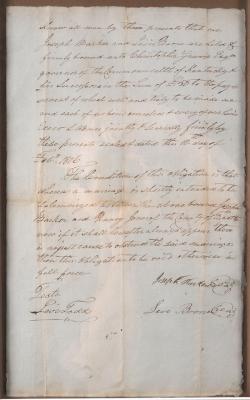 Know all men by these presents that we
Joseph Barker and Levi Brown are held &
firmly bound unto Christopher Greenup Esqr
governor of the Commonwealth of Kentucky &
his Successors in the Sum of £50 to the pay
ment of which well and truly to be made we
and each of us bind ourselves & every of our
Heirs jointly & Severally firmly by
these presents sealed & dated this day of
Feby 1806
The Condition of this obligation is that
whereas a marriage is shortly intended to be
Solemnized between the above bound Joseph
Barker and Nancy
now if it shall hereafter always appear there
is no just cause to obstruct the said marriage
then this obligation to be void otherwise in
full force
Teste
Levi Todd
Joseph Barker
Levi Brown